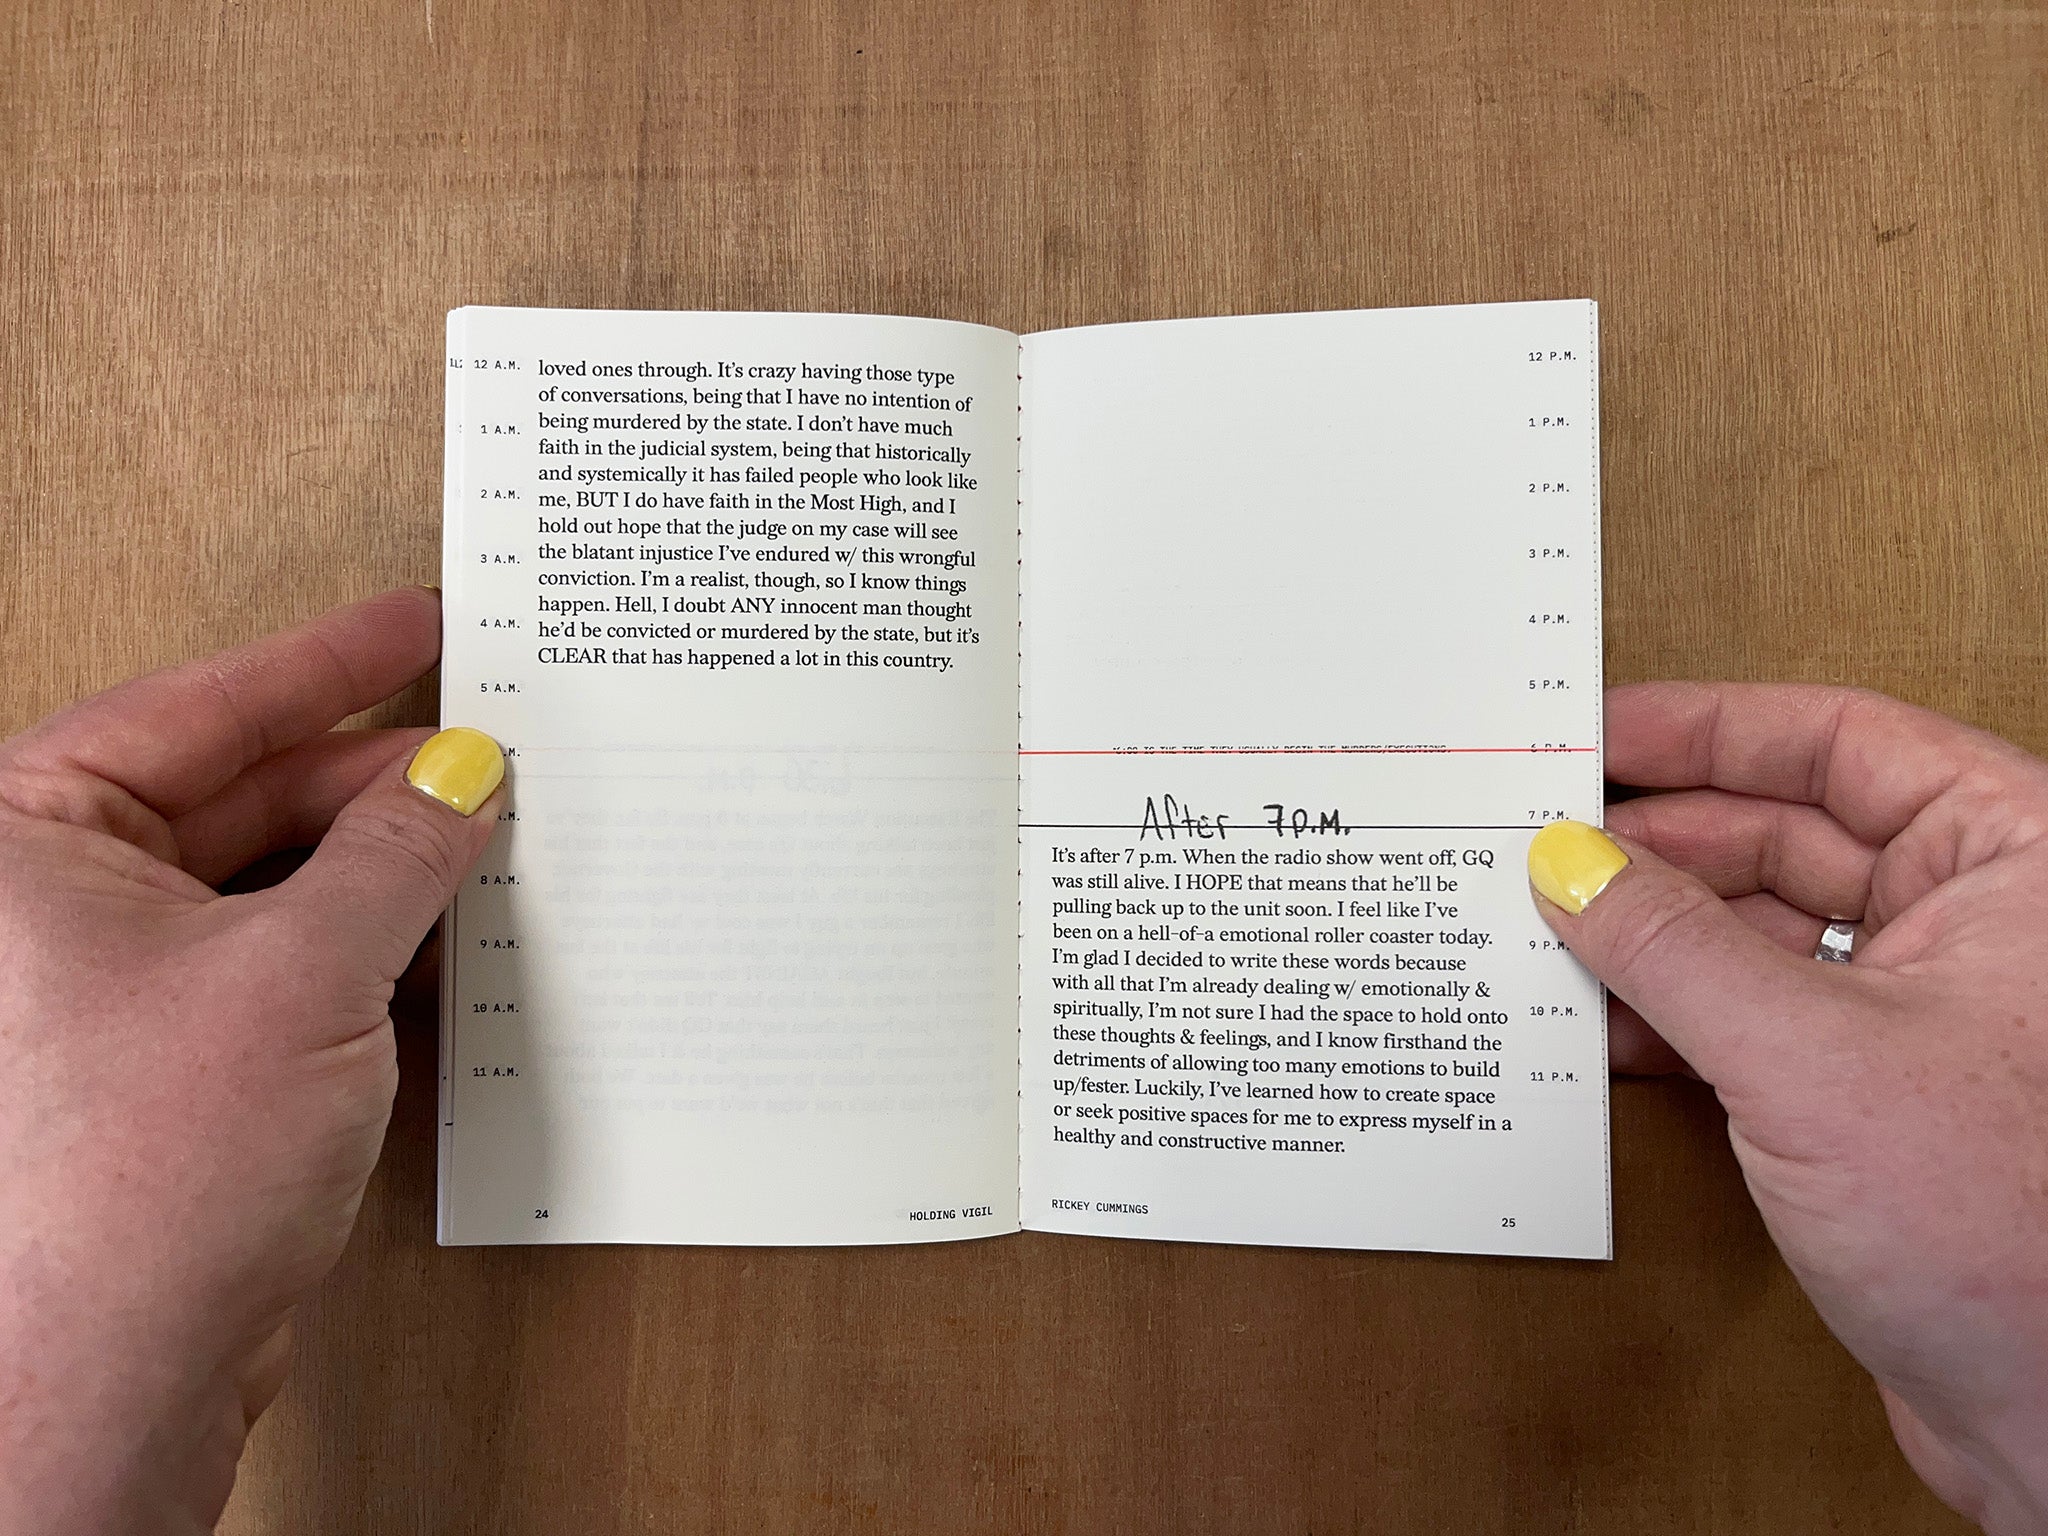 12 A.M.
1 A.M.
2 A.M.
3 A.M.
4 A.M.
5 A.M.
8 A.M.
9 A.M.
10 A.M.
11 A.M.
loved ones through. It's crazy having those type
of conversations, being that I have no intention of
being murdered by the state. I don't have much
faith in the judicial system, being that historically
and systemically it has failed people who look like
me, BUT I do have faith in the Most High, and I
hold out hope that the judge on my case will see
the blatant injustice I've endured w/ this wrongful
conviction. I'm a realist, though, so I know things
happen. Hell, I doubt ANY innocent man thought
he'd be convicted or murdered by the state, but it's
CLEAR that has happened a lot in this country.
24
HOLDING VIGIL
12 P.M.
1 P.M.
2 P.M.
3 P.M.
4 P.M.
5 P.M.
6 P.M.
7 P.M.
9 P.M.
10 P.M.
11 P.M.
*6:00 IS THE TIME THEY USUALLY BEGIN THE MURDERS/EXECUTIONS.
After 7P.M.
It's after 7 p.m. When the radio show went off, GQ
was still alive. I HOPE that means that he'll be
pulling back up to the unit soon. I feel like I've
been on a hell-of-a emotional roller coaster today.
I'm glad I decided to write these words because
with all that I'm already dealing w/ emotionally &
spiritually, I'm not sure I had the space to hold onto
these thoughts & feelings, and I know firsthand the
detriments of allowing too many emotions to build
up/fester. Luckily, I've learned how to create space
or seek positive spaces for me to express myself in a
healthy and constructive manner.
RICKEY CUMMINGS
25